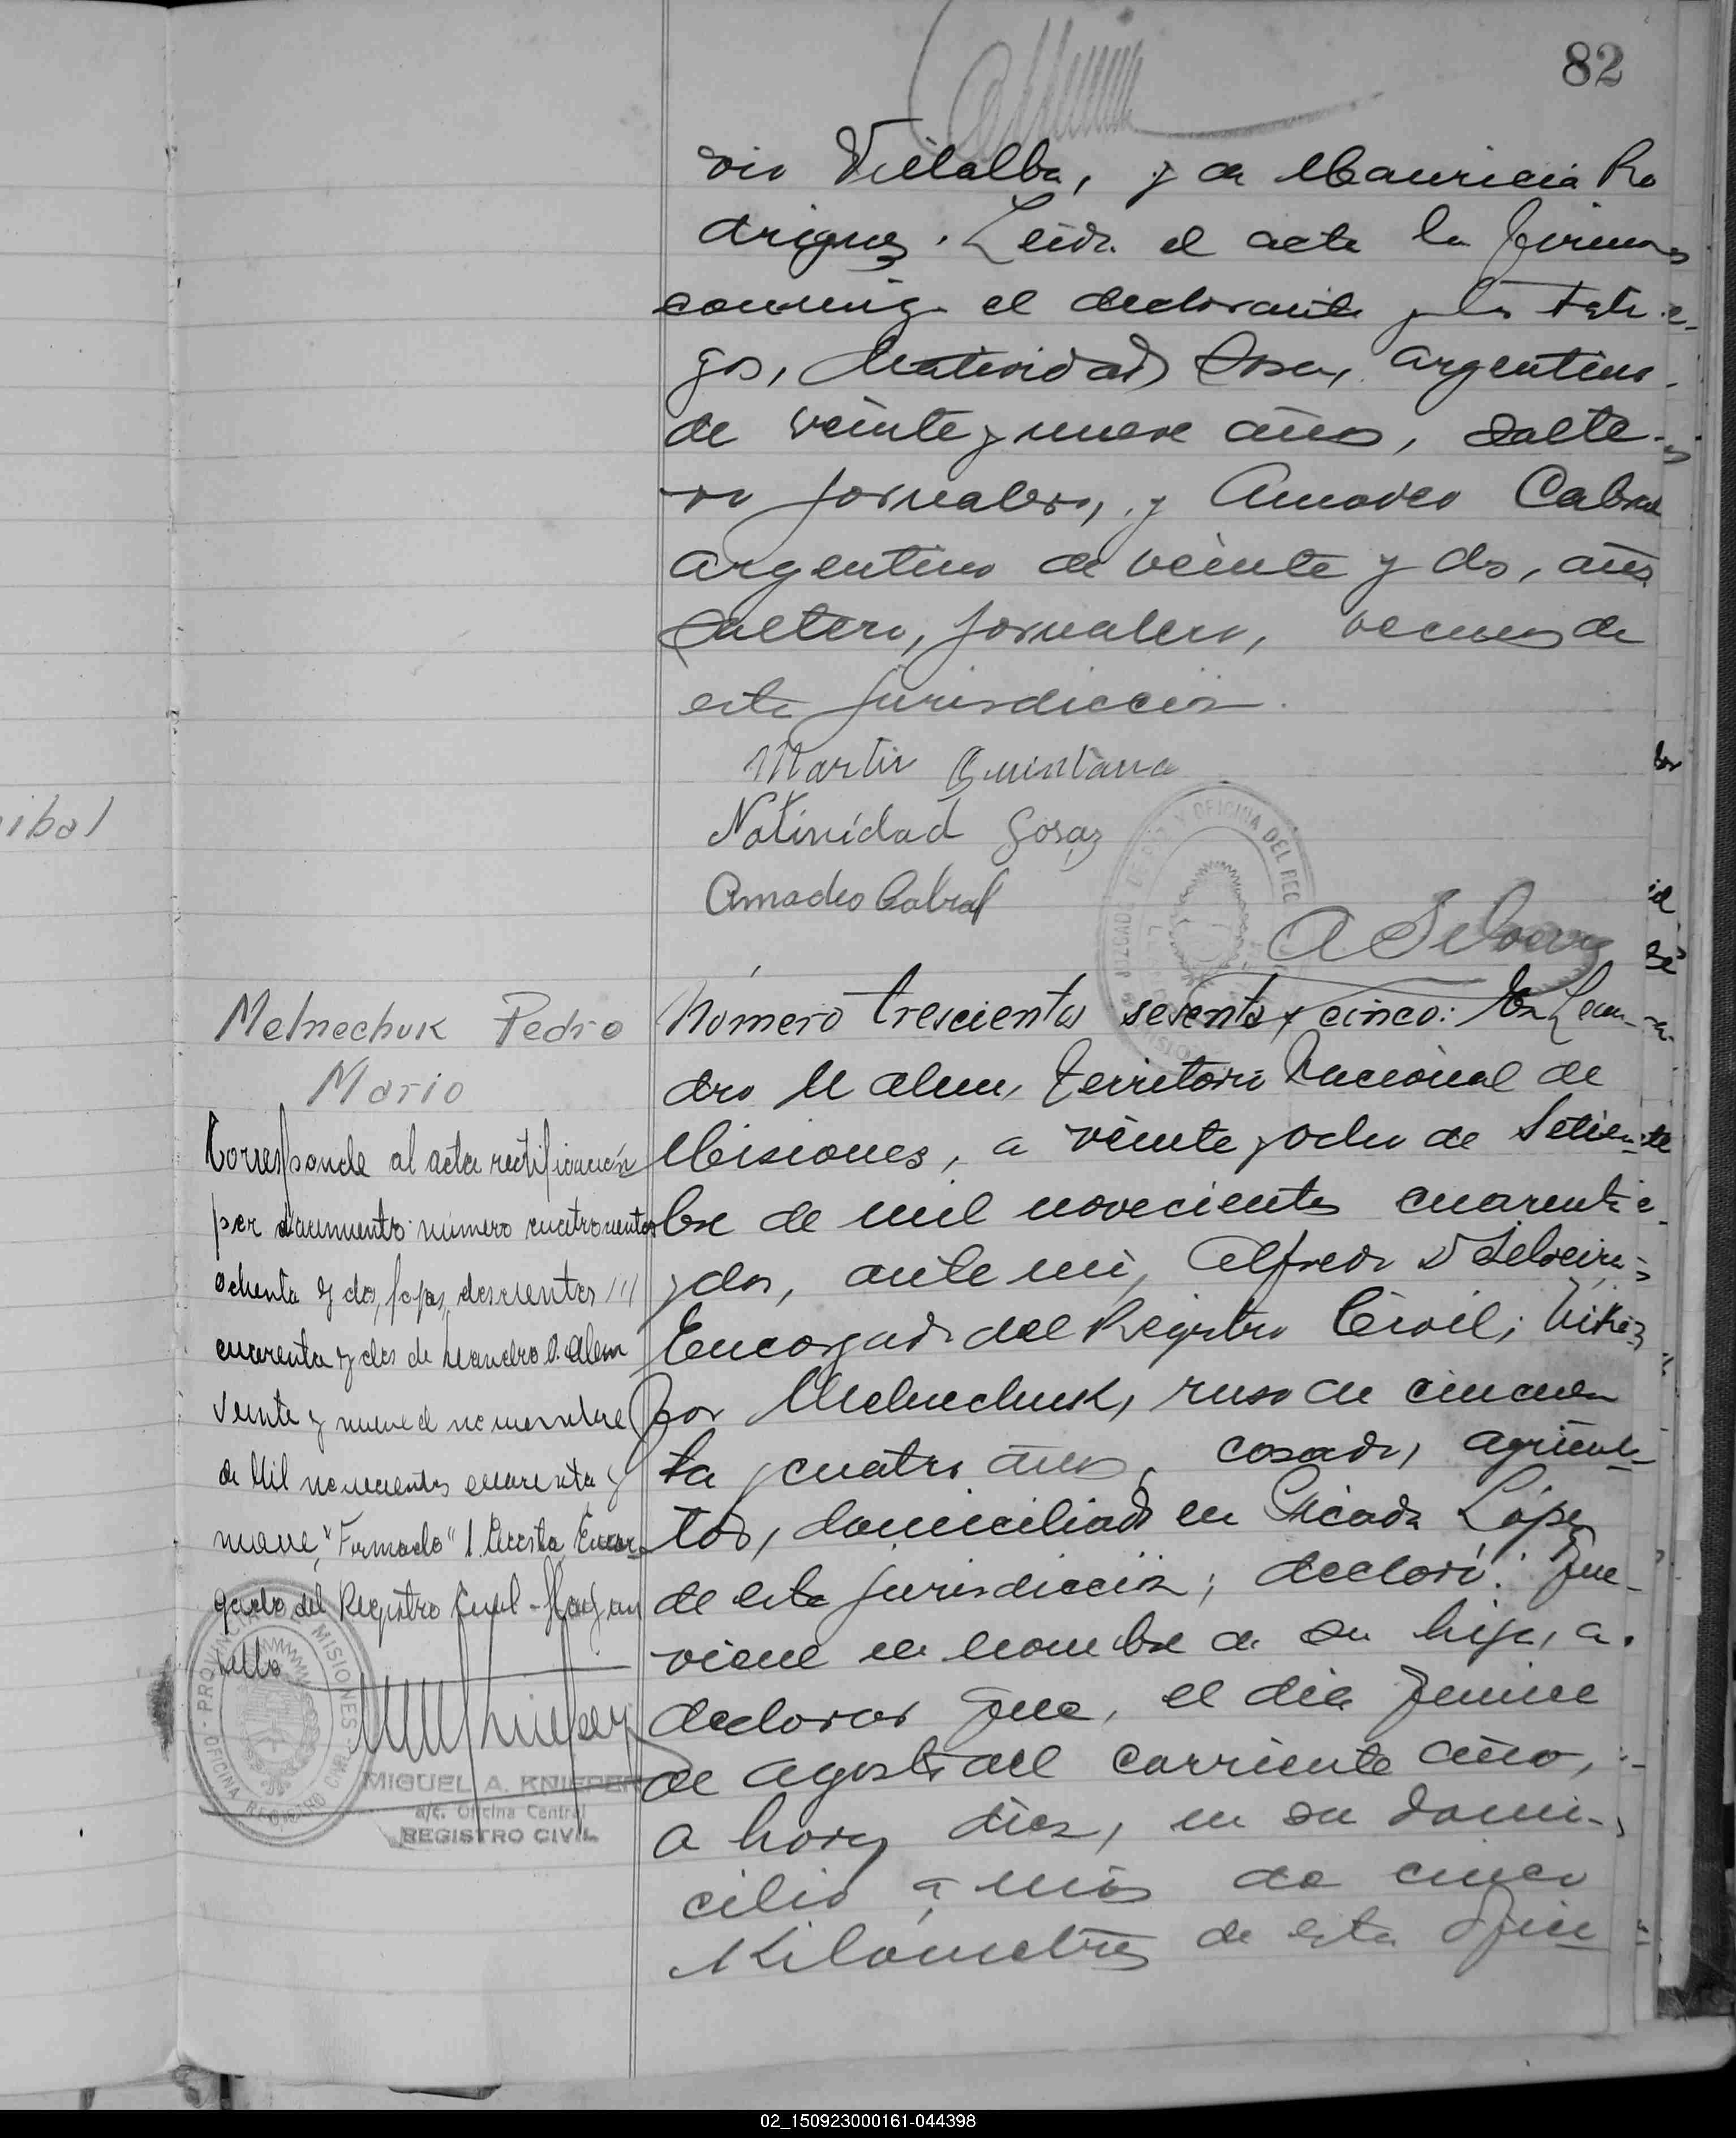 82
vio Villalba, y de Mauricia Ro
driguez. Leida el acta la firma
conmigo el declarante y los testi
gos, Natividad Sosa, argentino
de veinte y nueve años, solte-
ro jornalero, y Amadeo Cabral
argentino de veinte y dos, años
soltero, jornalero, vecinos de
esta jurisdiccion.
Martin Quintana
Natividad Sosa
Amadeo Cabral
JUZGADO DE PAZ Y OFICINA DEL REG
A Silveira
ibal
Melnechuk Pedro
Mario
Corresponde al acta rectificación
por documento número cuatrocientos
ochenta y dos, fojas, doscientos ///
cuarenta y dos de Leandro N. Alem
veinte y nueve de noviembre
de Mil novecientos cuarenta y
nueve, "Firmado" I. Acosta, Encar
gado del Registro Civil - Hay un
sello
PROVINCIA DE MISIONES
OFICINA REGISTRO CIVIL
MIGUEL A. KNIEPER
a/c. Oficina Central
REGISTRO CIVIL
Número trescientos sesenta y cinco: En Lean-
dro N alem, Territorio Nacional de
Misiones, a veinte y ocho de Setiem
bre de mil novecientos cuarenta
y dos, ante mi, Alfredo D Silveira
Encargado del Registro Civil;
for Melnechuk, ruso de cincuen
ta y cuatro años, casado, agricul-
tor, domiciliado en Picada López
de esta jurisdiccion; declaró: Que
viene en nombre de su hija, a
declarar que, el dia quince
de agosto del corriente año,
a horas diez, en su domi-
cilio a más de cinco
Kilómetros de esta Ofici
02_150923000161-044398